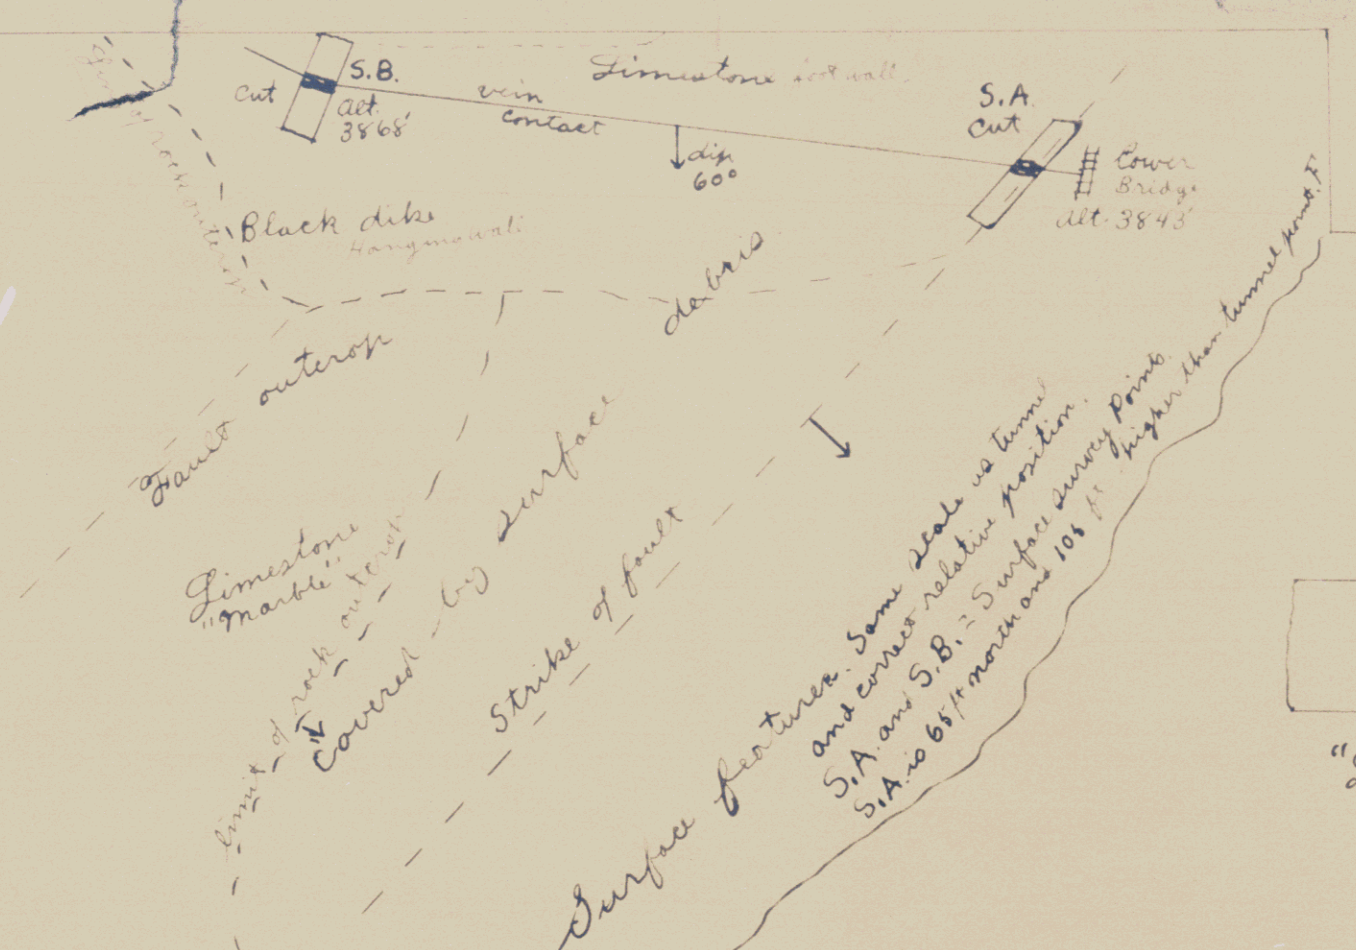 S.B.
cut
Alt.
3868'
vein
contact
Limestone footwall
dip
60°
S.A.
cut
Lower
Bridge
Alt. 3843'
limit of rock outcrop
Black dike
Hanging wall
debris
Fault outcrop
Limestone
"Marble"
limit of rock outcrop
Covered by surface
Strike of fault
Surface features. Same scale as tunnel
and correct relative position.
S.A. and S.B. = Surface survey points.
S.A. is 65 ft north and 108 ft. higher than tunnel point F.